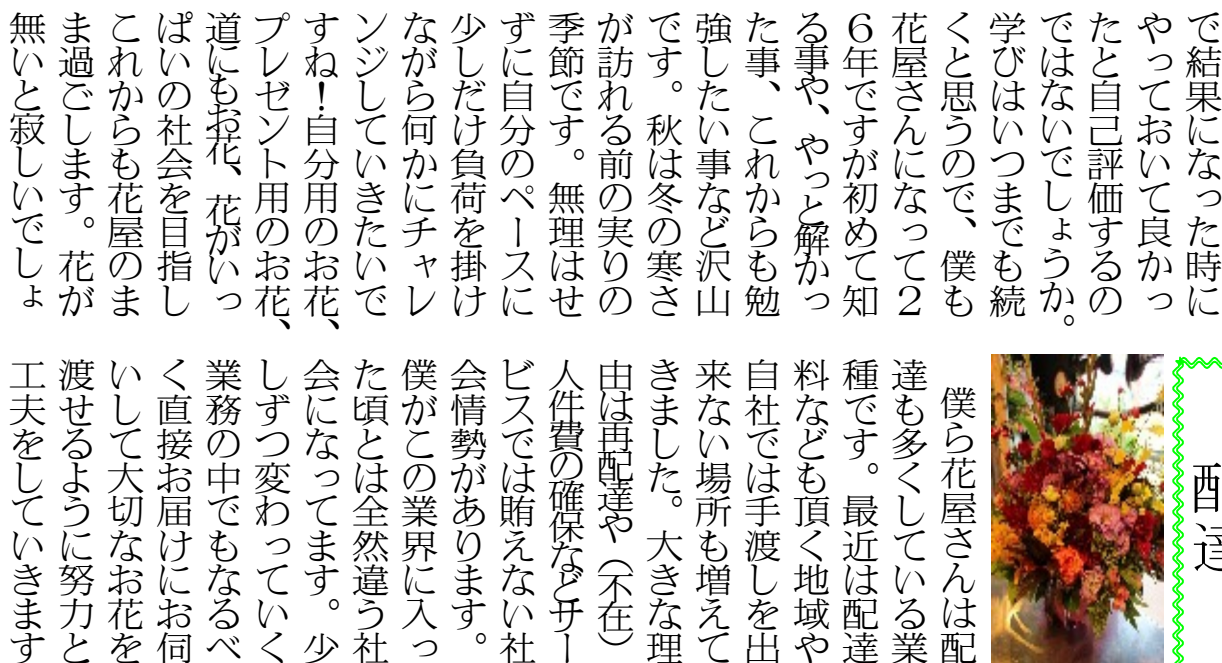 で結果になった時に
やっておいて良かっ
たと自己評価するの
ではないでしょうか。
学びはいつまでも続
くと思うので、僕も
花屋さんになって２
６年ですが初めて知
る事や、やっと解かっ
た事、これからも勉
強したい事など沢山
です。秋は冬の寒さ
が訪れる前の実りの
季節です。無理はせ
ずに自分のペースに
少しだけ負荷を掛け
ながら何かにチャレ
ンジしていきたいで
すね！自分用のお花、
プレゼント用のお花、
道にもお花、花がいっ
ぱいの社会を目指し
これからも花屋のま
ま過ごします。花が
無いと寂しいでしょ
配達
僕ら花屋さんは配
達も多くしている業
種です。最近は配達
料なども頂く地域や
自社では手渡しを出
来ない場所も増えて
きました。大きな理
由は再配達や（不在）
人件費の確保などサー
ビスでは賄えない社
会情勢があります。
僕がこの業界に入っ
た頃とは全然違う社
会になってます。少
しずつ変わっていく
業務の中でもなるべ
く直接お届けにお伺
いして大切なお花を
渡せるように努力と
工夫をしていきます